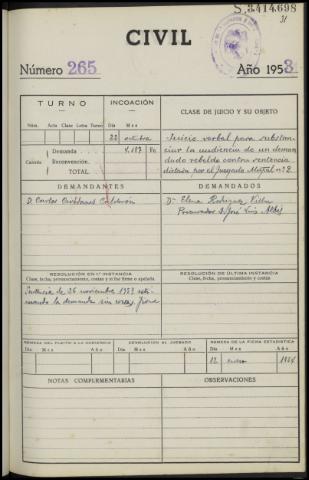 S.3.414.698
31
CIVIL
Número 265
Año 1958
TURNO
INCOACIÓN
CLASE DE JUICIO Y SU OBJETO
Núm. Acta Clase Letra Turno Día Mes
22 octubre
Cuantía Demanda
Reconvención
TOTAL
Juicio verbal para substan-
ciar la audiencia de un deman-
dado rebelde contra sentencia
dictada por el Juzgado Mpal nº 2
DEMANDANTES
DEMANDADOS
D. Carlos Calderón
Dª Elena Rodríguez
Procurador D. José Luis
RESOLUCIÓN EN 1ª INSTANCIA
Clase, fecha, pronunciamiento, costas y si fue firme o apelada
RESOLUCIÓN DE ÚLTIMA INSTANCIA
Clase, fecha, pronunciamiento y costas
Sentencia de 26 noviembre 1953 esti-
mando la demanda sin costas, firme
REMESA DEL PLEITO A LA AUDIENCIA
DEVOLUCIÓN AL JUZGADO
REMESA DE LA FICHA ESTADÍSTICA
Día Mes Año Día Mes Año Día Mes Año
12 enero 1954
NOTAS COMPLEMENTARIAS
OBSERVACIONES